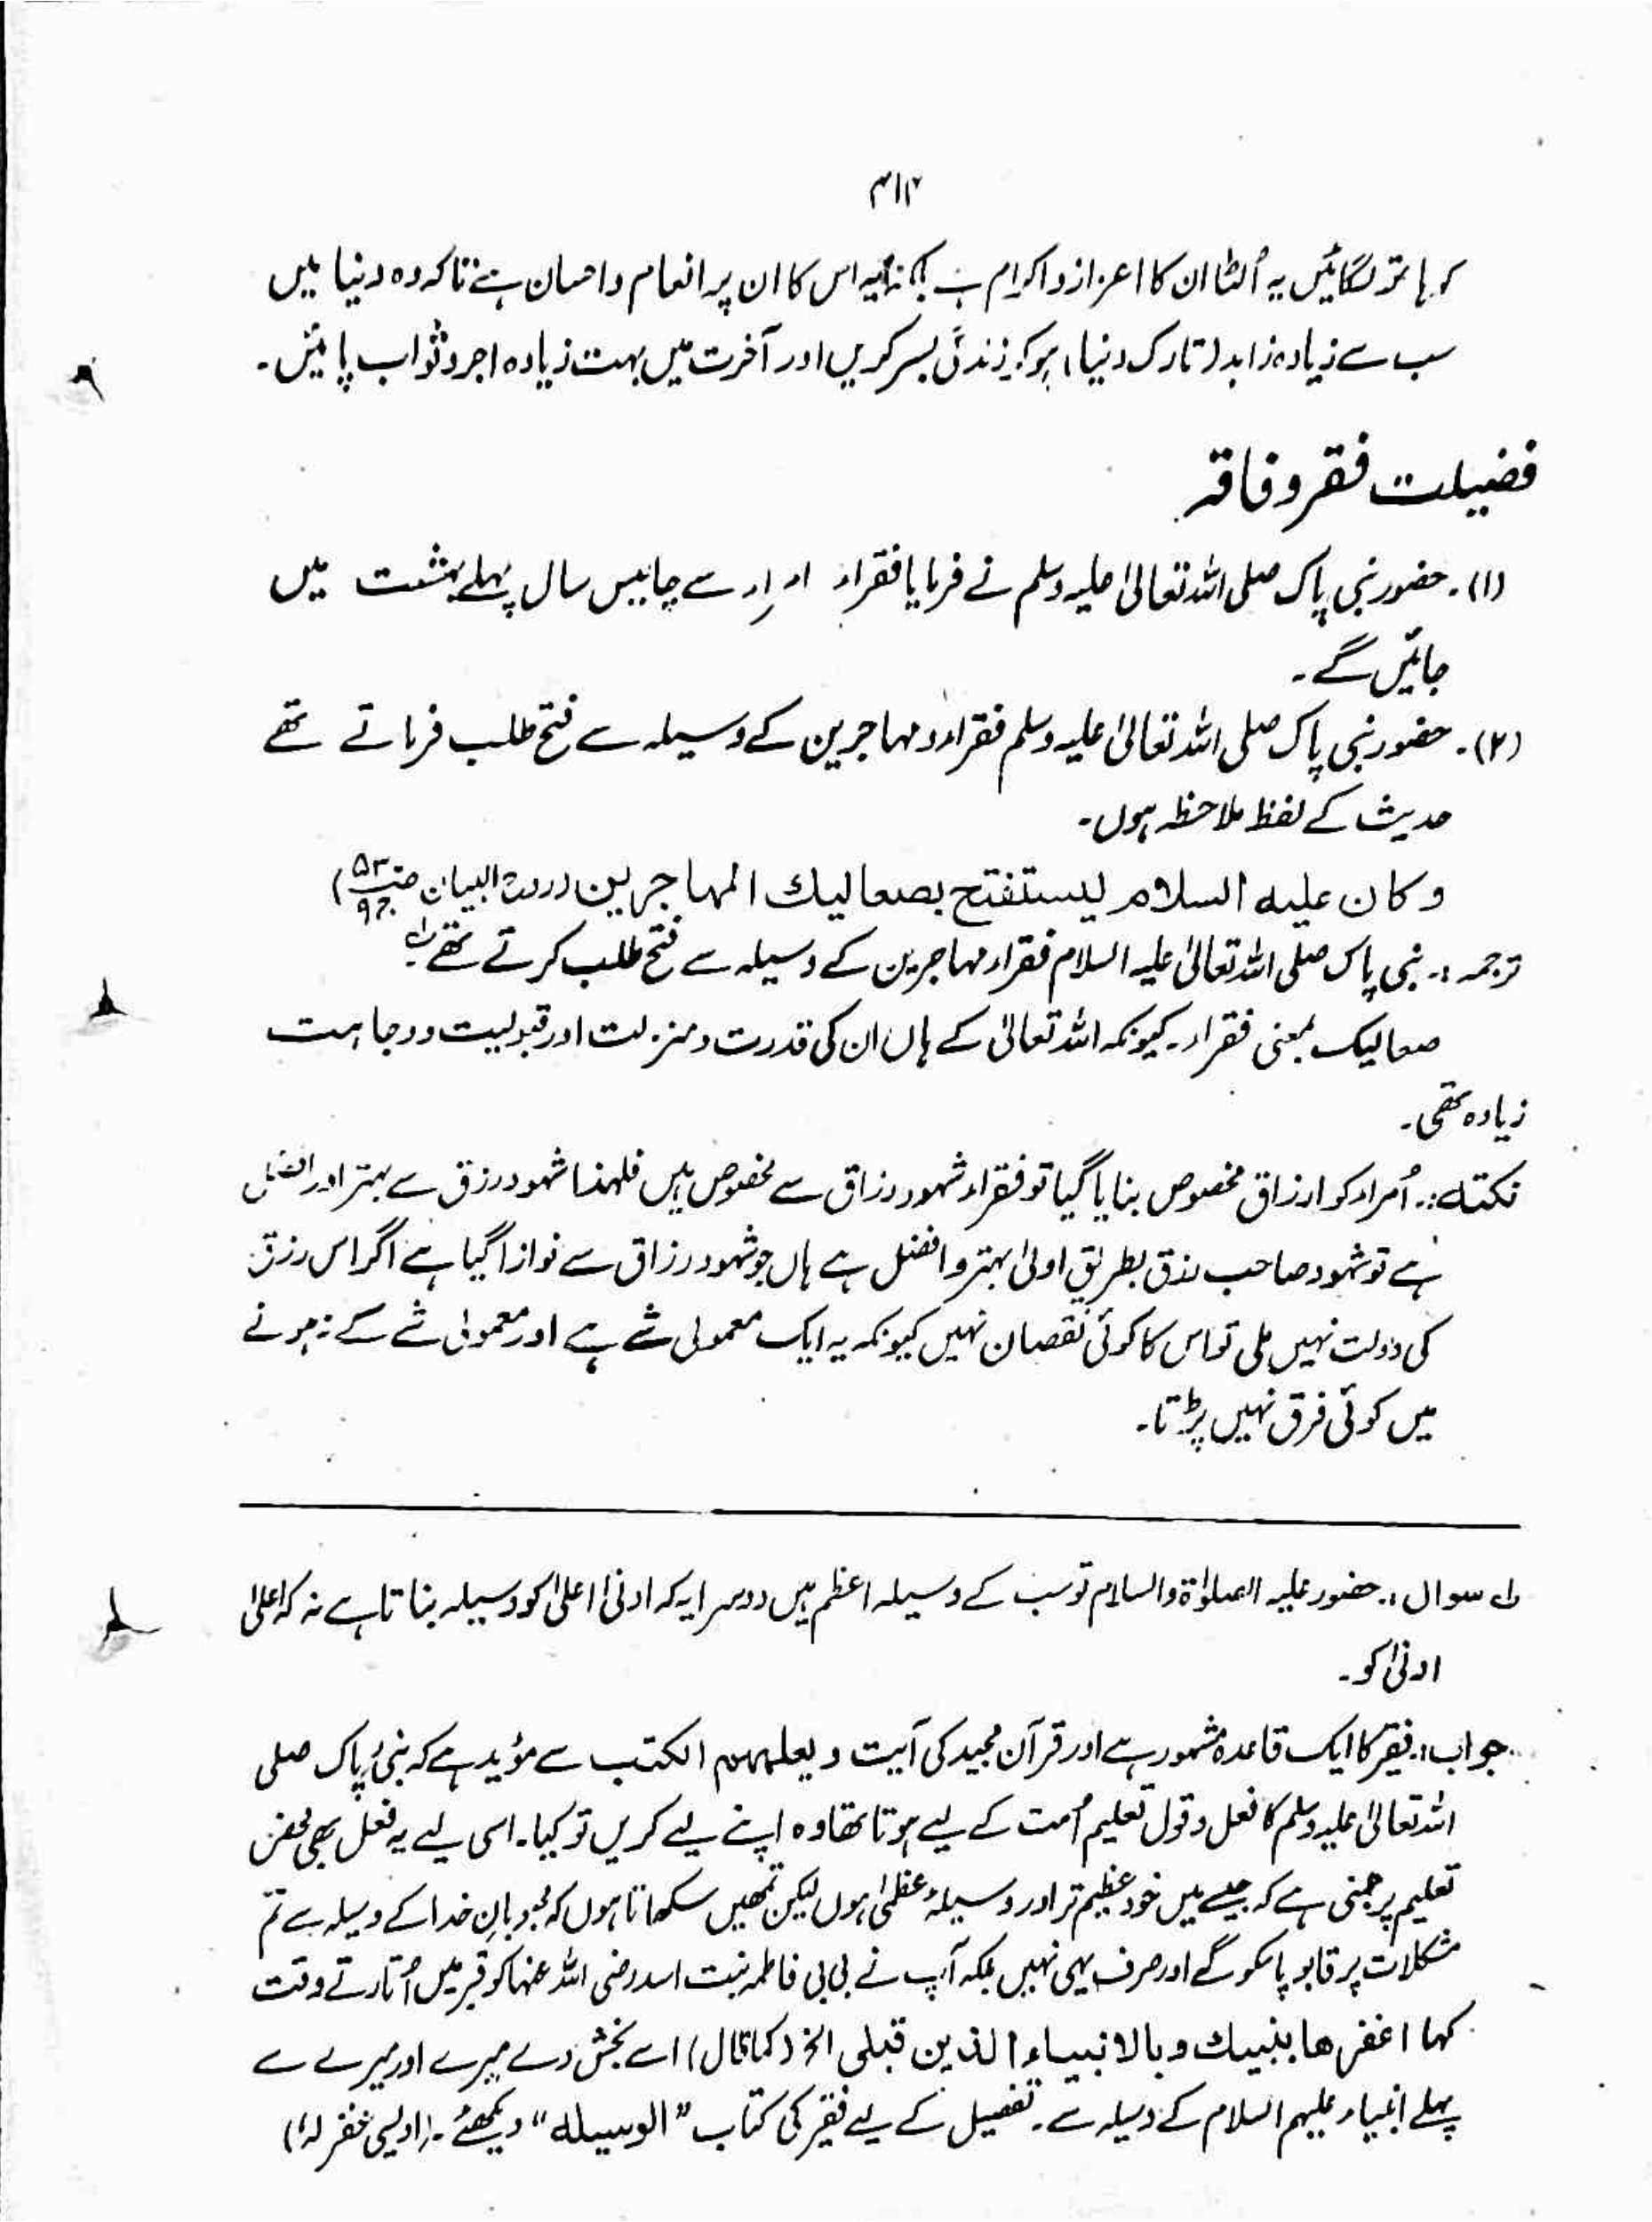 ۳۱۲
کہ ہاتھ لگائیں یہ اُلٹا ان کا اعزاز و اکرام ہے یہ اس کا ان پر انعام و احسان ہے تاکہ وہ دنیا میں
سب سے زیادہ زاہد (تارک دنیا) ہو کر زندگی بسر کریں اور آخرت میں بہت زیادہ اجر و ثواب پائیں۔
فضیلت فقر و فاقہ
(۱)۔ حضور نبی پاک صلی اللہ تعالیٰ علیہ وسلم نے فرمایا فقراء سے چالیس سال پہلے بہشت میں
جائیں گے۔
(۲)۔ حضور نبی پاک صلی اللہ تعالیٰ علیہ وسلم فقراء و مہاجرین کے وسیلہ سے فتح طلب فرماتے تھے
حدیث کے لفظ ملاحظہ ہوں۔
وکان علیہ السلام لیستفتح بصعالیك المہاجرین (روح البیان ج۹)
ترجمہ :۔ نبی پاک صلی اللہ تعالیٰ علیہ السلام فقراء مہاجرین کے وسیلہ سے فتح طلب کرتے تھے۔
صعالیک بمعنی فقراء۔ کیونکہ اللہ تعالیٰ کے ہاں ان کی قدرت و منزلت اور قبولیت و وجاہت
زیادہ تھی۔
نکتہ :۔ اُمراء کو ارزاق مخصوص بنایا گیا تو فقراء شہود رزاق سے مخصوص ہیں فلہذا شہود رزق سے بہتر اور افضل
ہے تو شہود صاحب رزق بطریق اولیٰ بہتر و افضل ہے ہاں جو شہود رزاق سے نوازا گیا ہے اگر اس رزق
کی دولت نہیں ملی تو اس کا کوئی نقصان نہیں کیونکہ یہ ایک معمولی شے ہے اور معمولی شے کے نہ ہونے
میں کوئی فرق نہیں پڑتا۔
لے سوال :۔ حضور علیہ الصلوٰۃ والسلام تو سب کے وسیلہ اعظم ہیں دوسرا یہ کہ ادنیٰ اعلیٰ کو وسیلہ بناتا ہے نہ کہ اعلیٰ
ادنیٰ کو۔
جواب :۔ فقیر کا ایک قاعدہ مشہور ہے اور قرآن مجید کی آیت ویعلمهم الکتب سے مؤید ہے کہ نبیٔ پاک صلی
اللہ تعالیٰ علیہ وسلم کا فعل و قول تعلیم اُمت کے لیے ہوتا تھا وہ اپنے لیے کریں تو کیا۔ اسی لیے یہ فعل بھی محض
تعلیم پر مبنی ہے کہ جیسے میں خود عظیم تر اور وسیلۂ عظمیٰ ہوں لیکن تمھیں سکھاتا ہوں کہ محبوبانِ خدا کے وسیلہ سے تم
مشکلات پر قابو پا سکو گے اور صرف یہی نہیں بلکہ آپ نے بی بی فاطمہ بنت اسد رضی اللہ عنہا کو قبر میں اُتارتے وقت
کہا اغفرها بنبیك وبالانبیاء الذین قبلی الخ (کما قال) اے بخش دے میرے اور میرے سے
پہلے انبیاء علیہم السلام کے وسیلہ سے۔ تفصیل کے لیے فقیر کی کتاب "الوسیلہ" دیکھئے۔ (اویسی غفرلہٗ)